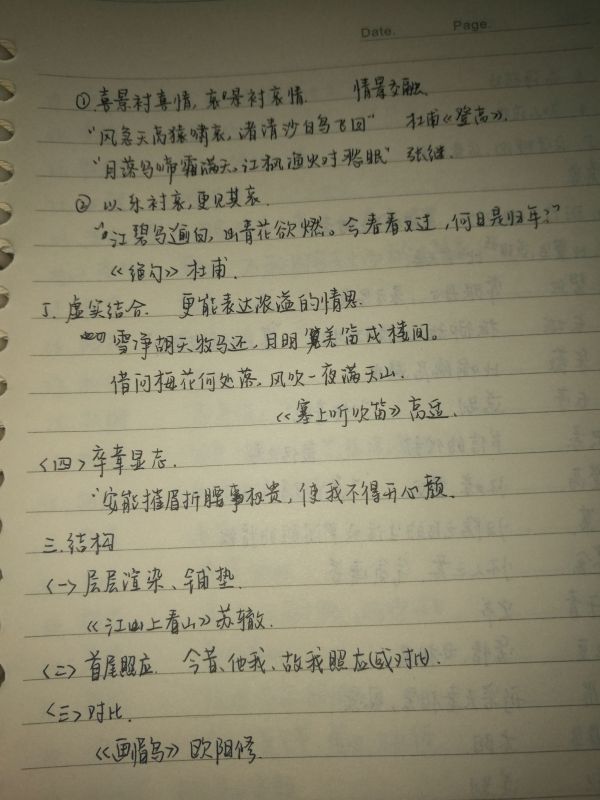 Date. Page.
①喜景衬喜情,哀景衬哀情. 情景交融.
“风急天高猿啸哀,渚清沙白鸟飞回” 杜甫《登高》.
“月落乌啼霜满天,江枫渔火对愁眠” 张继.
② 以乐衬哀,更见其哀.
“江碧鸟逾白,山青花欲燃。今春看又过,何日是归年?”
《绝句》杜甫.
5. 虚实结合. 更能表达浓溢的情思.
雪净胡天牧马还,月明羌笛戍楼间。
借问梅花何处落,风吹一夜满天山.
《塞上听吹笛》高适.
<四>卒章显志.
“安能摧眉折腰事权贵,使我不得开心颜.
三.结构
<一>层层渲染、铺垫.
《江山上看山》苏辙.
<二>首尾照应. 今昔、他我、故我照应(或对比).
<三>对比.
《画眉鸟》欧阳修.